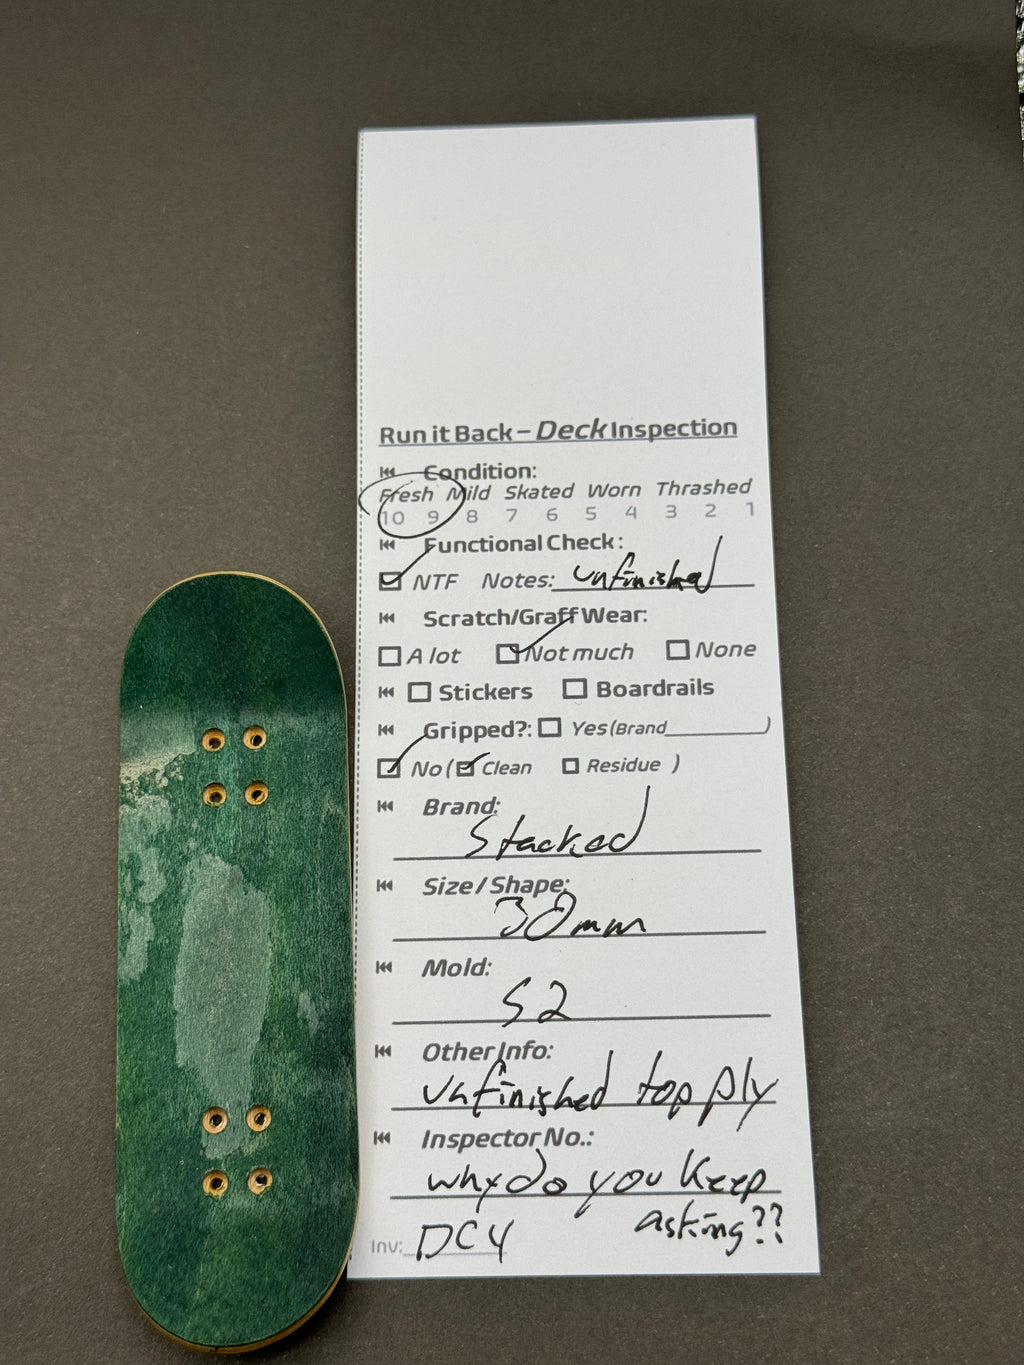 Run it Back – Deck Inspection
Condition:
Fresh Mild Skated Worn Thrashed
10 9 8 7 6 5 4 3 2 1
Functional Check:
NTF Notes: unfinished
Scratch/Graff Wear:
A lot Not much None
Stickers Boardrails
Gripped?: Yes (Brand________)
No ( Clean Residue )
Brand:
Stacked
Size / Shape:
30mm
Mold:
S2
Other Info:
unfinished top ply
Inspector No.:
why do you keep
asking??
Inv: DC4